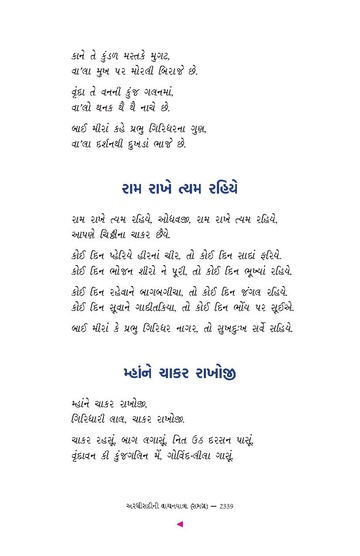 કાને તે કુંડળ મસ્તકે મુગટ,
વા'લા મુખ પર મોરલી બિરાજે છે.
વૃંદા તે વનની કુંજ ગલનમાં,
વા'લો થનક થૈ થૈ નાચે છે.
બાઈ મીરાં કહે પ્રભુ ગિરિધરના ગુણ,
વા'લા દર્શનથી દુખડાં ભાજે છે.
રામ રાખે ત્યમ રહિયે
રામ રાખે ત્યમ રહિવે, ઓધવજી, રામ રાખે ત્યમ રહિવે,
આપણે ચિઠ્ઠીના ચાકર છૈવે.
કોઈ દિન પ્હેરિવે હીરનાં ચીર, તો કોઈ દિન સાદાં ફરિવે.
કોઈ દિન ભોજન શીરો ને પૂરી, તો કોઈ દિન ભૂખ્યાં રહિવે.
કોઈ દિન રહેવાને બાગબગીચા, તો કોઈ દિન જંગલ રહિવે.
કોઈ દિન સૂવાને ગાદીતકિયા, તો કોઈ દિન ભોંય પર સૂઈએ.
બાઈ મીરાં કે પ્રભુ ગિરિધર નાગર, તો સુખદુઃખ સર્વે સહિવે.
મ્હાંને ચાકર રાખોજી
મ્હાંને ચાકર રાખોજી,
ગિરિધારી લાલ, ચાકર રાખોજી.
ચાકર રહસૂં, બાગ લગાસૂં, નિત ઉઠ દરસન પાસૂં,
વૃંદાવન કી કુંજગલિન મેં, ગોવિંદ-લીલા ગાસૂં.
અરધીસદીની વાચનયાત્રા (સમગ્ર) — 2339